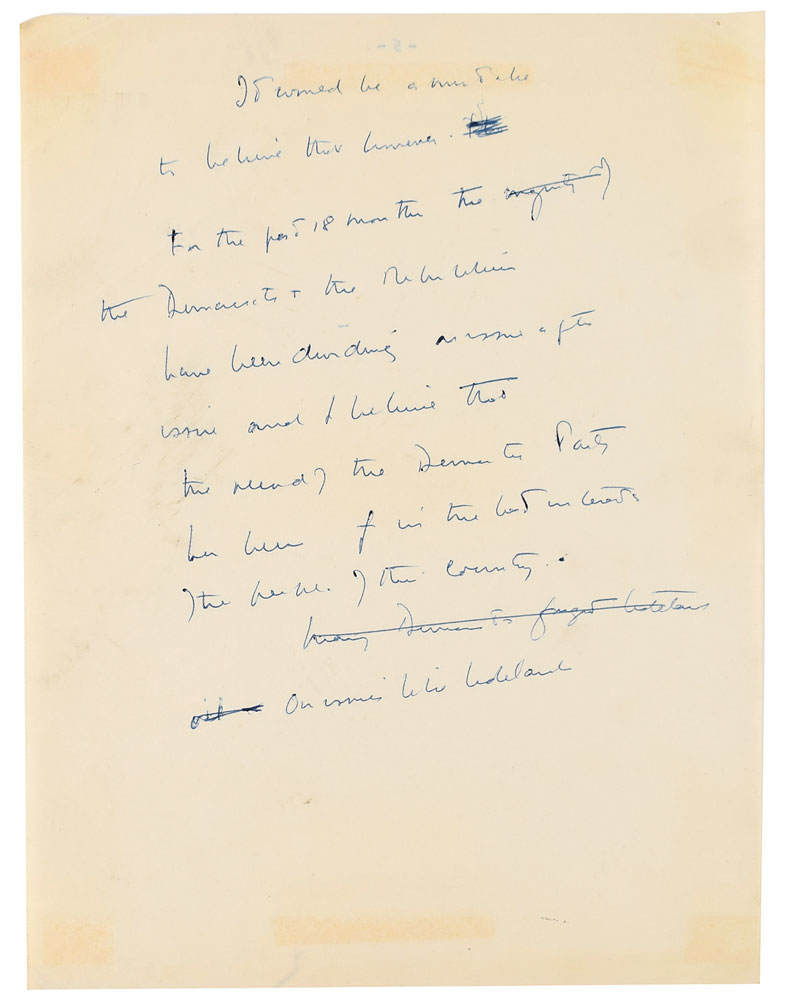 - 5 -
It would be a mistake
to believe that however.
For the past 18 months the majority of
the Democrats + the Republicans
have been dividing on issue after
issue and I believe that
the record of the Democratic Party
has been in the best interests
of the people of this country.
Many Democrats fought tidelands
oil
On issues like tideland